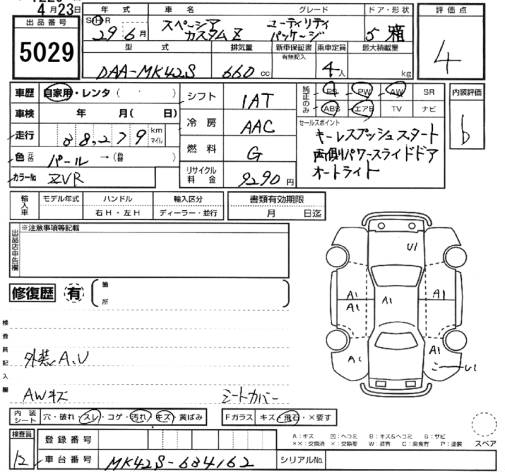 4月23日
5029
年式 車名 グレード ドア・形状 評価点
S H R 29年6月 スペーシア カスタムZ ユーティリティ パッケージ 5 箱 4
型式 排気量 新車保証書 有無記入 乗車定員 最大積載量
DAA-MK42S 660cc 4人 kg
車歴 自家用・レンタ( )
車検 年 月( 日)
走行 38,279 km マイル
色 パール→
カラーNo ZVR
シフト IAT
冷房 AAC
燃料 G
リサイクル料金 9290円
純正のみ PS PW AW SR
ABS エアB TV ナビ
セールスポイント
キーレスプッシュスタート
両側パワースライドドア
オートライト
内装評価
b
輸入車 モデル年式 ハンドル 輸入区分 書類有効期限
右H・左H ディーラー・並行 月 日迄
出品店申告欄 ※注意事項等記載
修復歴 有 箇所
検査員記入欄
外装A,U
AWキズ シートカバー
U1
A1 A1 A1
A1 A1
A1 U1
内装シート 穴・破れ スレ・コゲ・汚れ・キズ・黄ばみ Fガラス キズ・飛石・×要す
A:キズ U:ヘコミ B:キズ&ヘコミ S:サビ
スペア
検査員 12 登録番号
車台番号 MK42S-634162 シリアルNo.